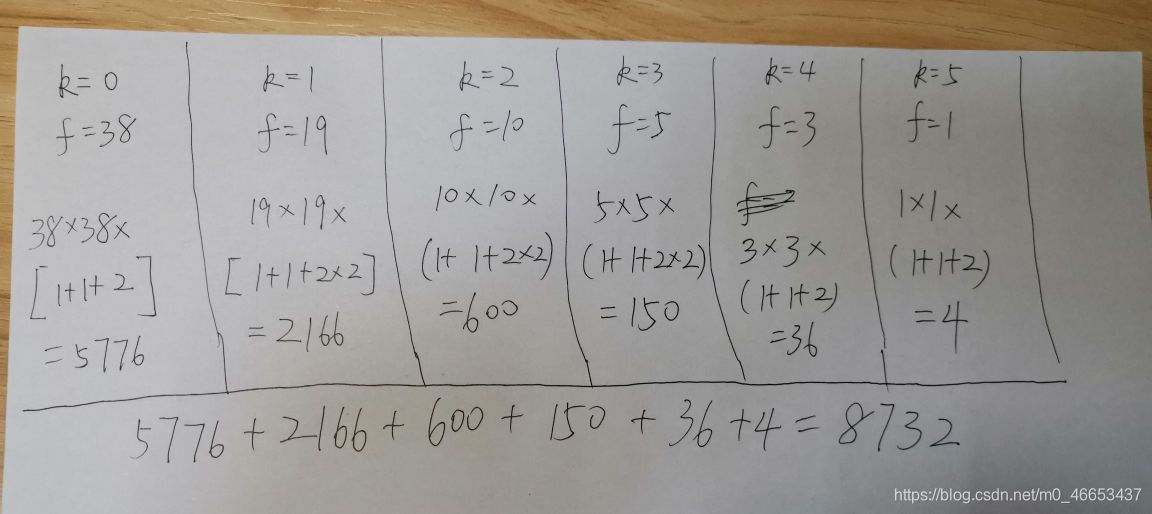 k=0
f=38
38×38×
[1+1+2]
=5776
k=1
f=19
19×19×
[1+1+2×2]
=2166
k=2
f=10
10×10×
(1+1+2×2)
=600
k=3
f=5
5×5×
(1+1+2×2)
=150
k=4
f=3
3×3×
(1+1+2)
=36
k=5
f=1
1×1×
(1+1+2)
=4
5776+2166+600+150+36+4=8732
https://blog.csdn.net/m0_46653437